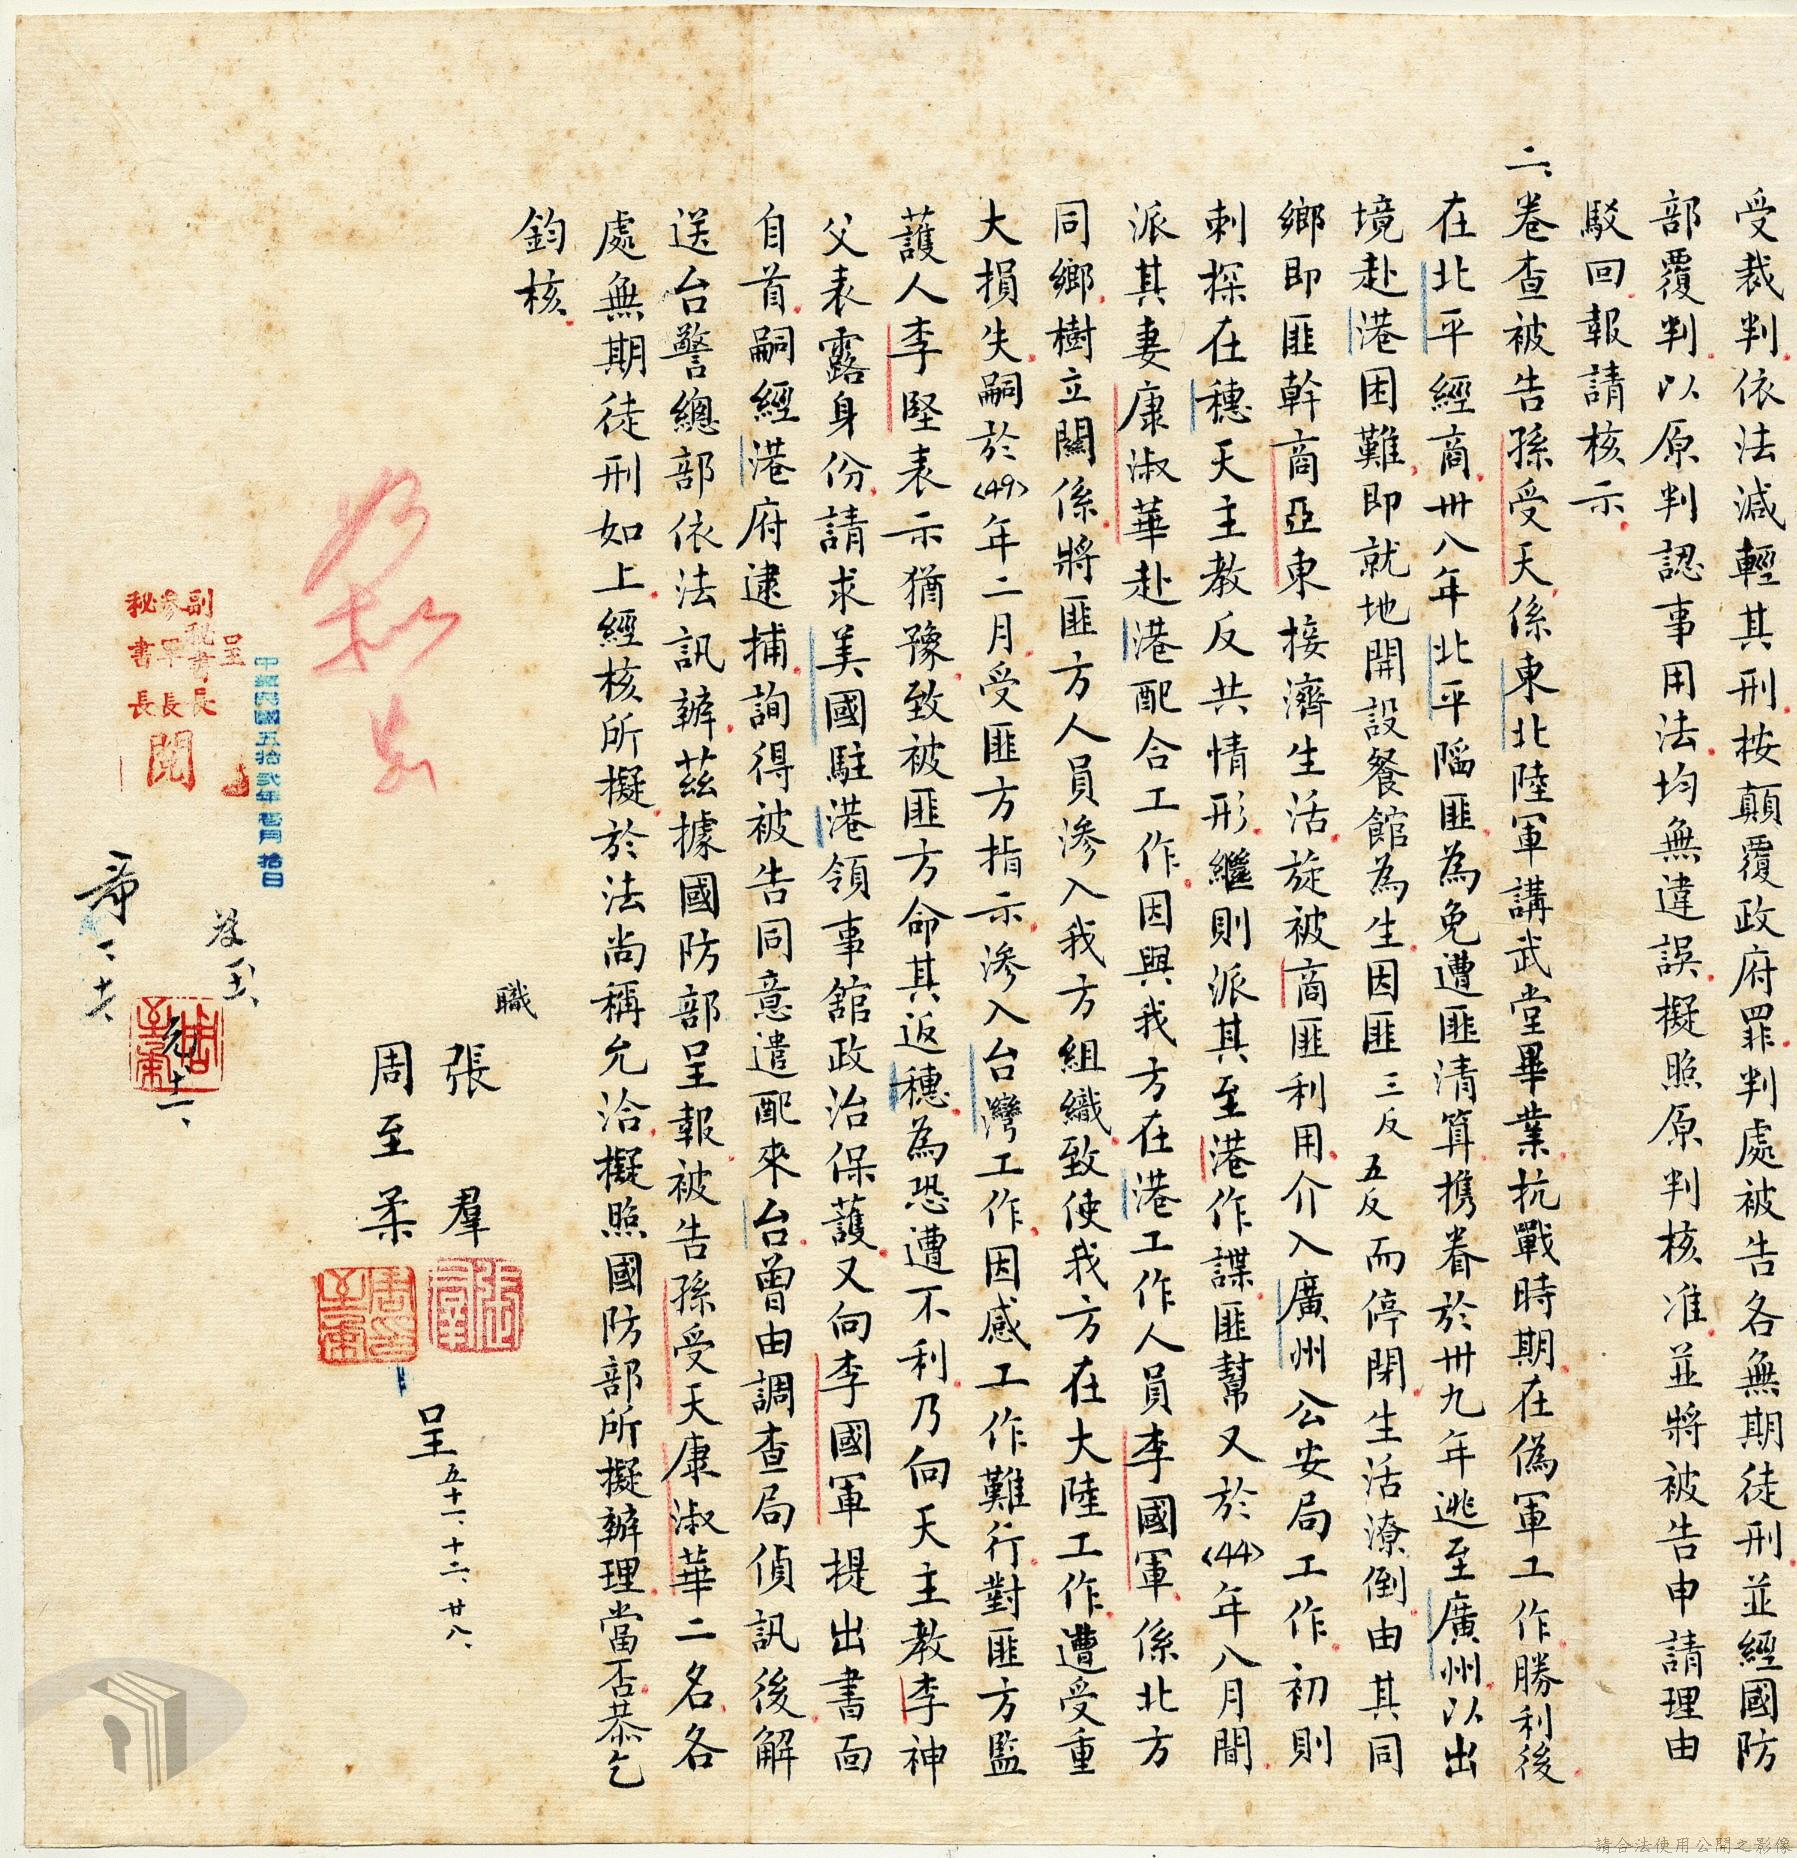 受裁判依法減輕其刑按顛覆政府罪判處被告各無期徒刑並經國防
部覆判以原判認事用法均無違誤擬照原判核准並將被告申請理由
駁回報請核示
二、卷查被告孫受天係東北陸軍講武堂畢業抗戰時期在偽軍工作勝利後
在北平經商卅八年北平陷匪為免遭匪清算攜眷於卅九年逃至廣州以出
境赴港困難即就地開設餐館為生因匪三反五反而停閉生活潦倒由其同
鄉即匪幹商亞東接濟生活旋被商匪利用介入廣州公安局工作初則
刺探在穗天主教反共情形繼則派其至港作諜匪幫又於〈44〉年八月間
派其妻康淑華赴港配合工作因與我方在港工作人員李國軍係北方
同鄉樹立關係將匪方人員滲入我方組織致使我方在大陸工作遭受重
大損失嗣於〈49〉年二月受匪方指示滲入台灣工作因感工作難行對匪方監
護人李堅表示猶豫致被匪方命其返穗為恐遭不利乃向天主教李神
父表露身份請求美國駐港領事舘政治保護又向李國軍提出書面
自首嗣經港府逮捕詢得被告同意遣配來台曾由調查局偵訊後解
送台警總部依法訊辦茲據國防部呈報被告孫受天康淑華二名各
處無期徒刑如上經核所擬於法尚稱允洽擬照國防部所擬辦理當否恭乞
鈞核
職
張羣
周至柔
呈五十一、十二、廿八、
如擬
中華民國五拾貳年壹月拾日
呈
副秘書長
參軍長
秘書長
閱
元、十一、
請合法使用公開之影像